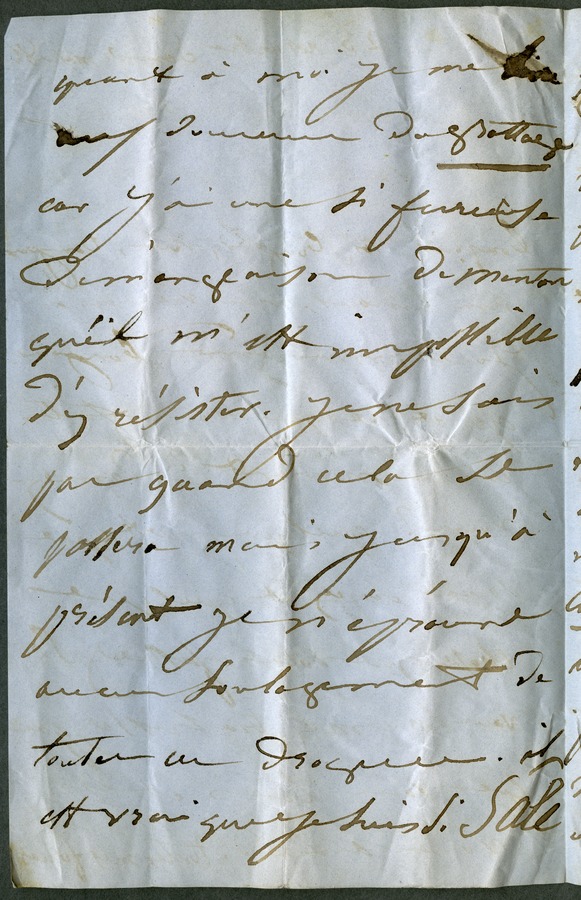 quant à moi je me
car j'ai une si furieuse
Demangaison Demonton
qu'il m'est impossible
D'y résister. je ne sais
pas quand cela se
passera mais jusqu'à
présent je n'éprouve
aucun soulagement De
toutes ces Drogues. il
est vrai que je suis si Sale